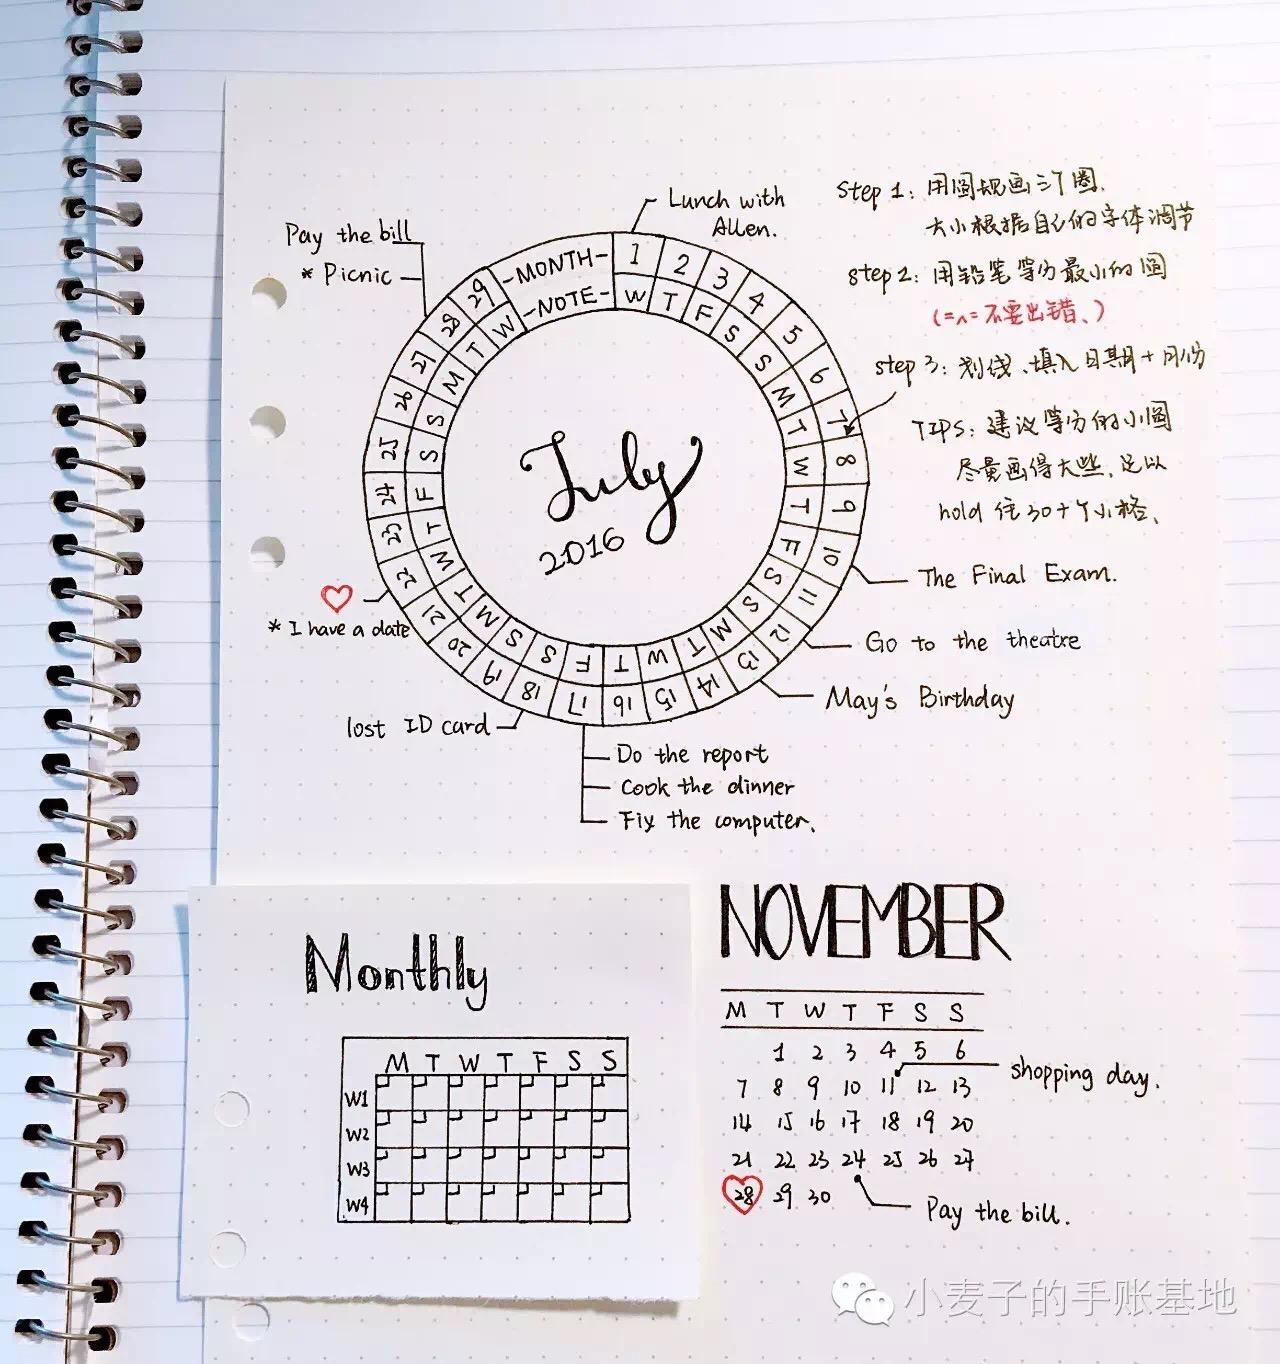 Lunch with
Allen.
Pay the bill
* Picnic
-MONTH-
-NOTE-
1 2 3 4 5 6 7 8 9 10 11 12 13 14 15 16 17 18 19 20 21 22 23 24 25 26 27 28 29
W T F S S M T W T F S S M T W T F S S M T W T F S S M T W
July
2016
step 1: 用圆规画三个圈.
大小根据自己的字体调节
step 2: 用铅笔等分最小的圆
(=^= 不要出错、)
step 3: 划线、填入日期+月份
TIPS: 建议等分的小圆
尽量画得大些,足以
hold 住30+个小格、
The Final Exam.
Go to the theatre
May's Birthday
* I have a date
lost ID card
Do the report
Cook the dinner
Fix the computer.
Monthly
M T W T F S S
W1
W2
W3
W4
NOVEMBER
M T W T F S S
1 2 3 4 5 6
shopping day.
7 8 9 10 11 12 13
14 15 16 17 18 19 20
21 22 23 24 25 26 27
28 29 30
Pay the bill.
小麦子的手账基地